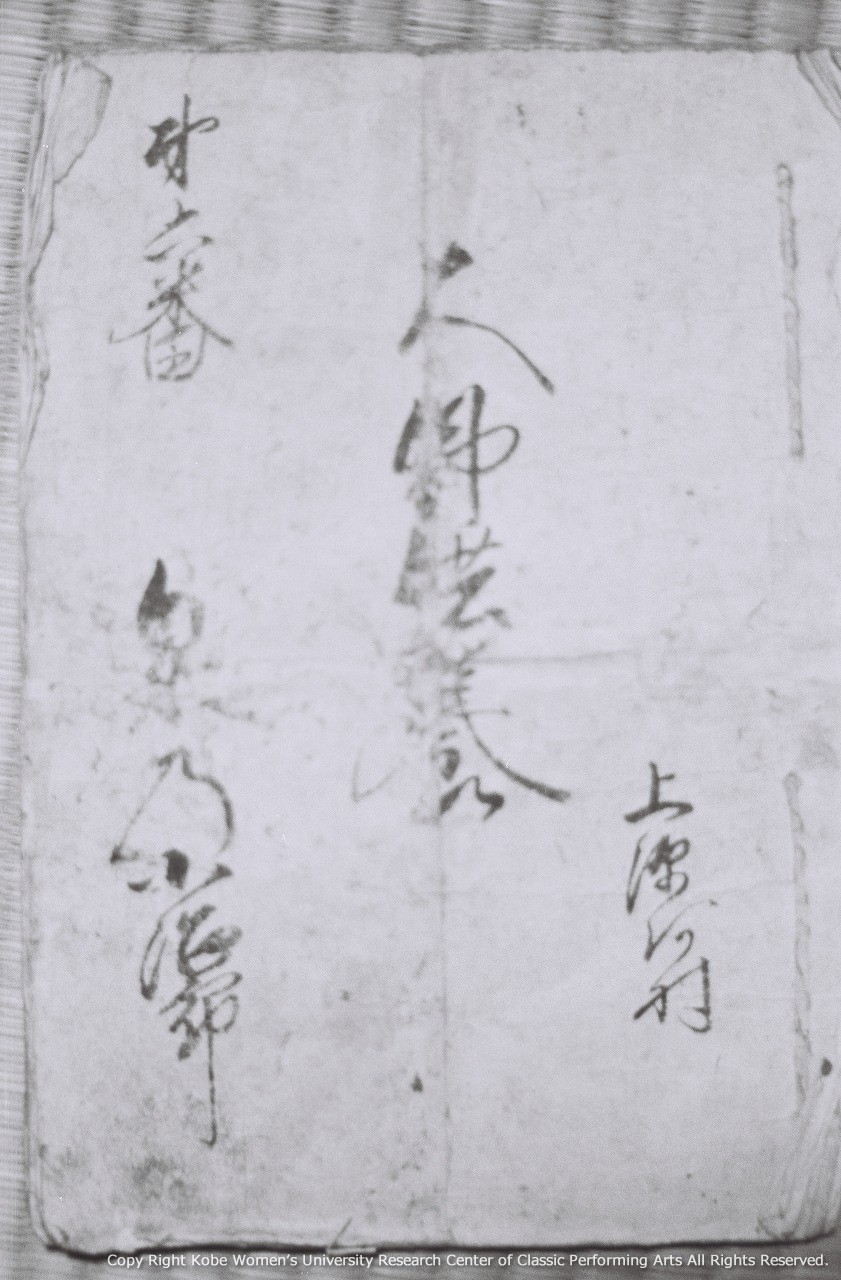 上深川村
大佛供養
第六番 泉乃小治郎
Copy Right Kobe Women's University Research Center of Classic Performing Arts All Rights Reserved.